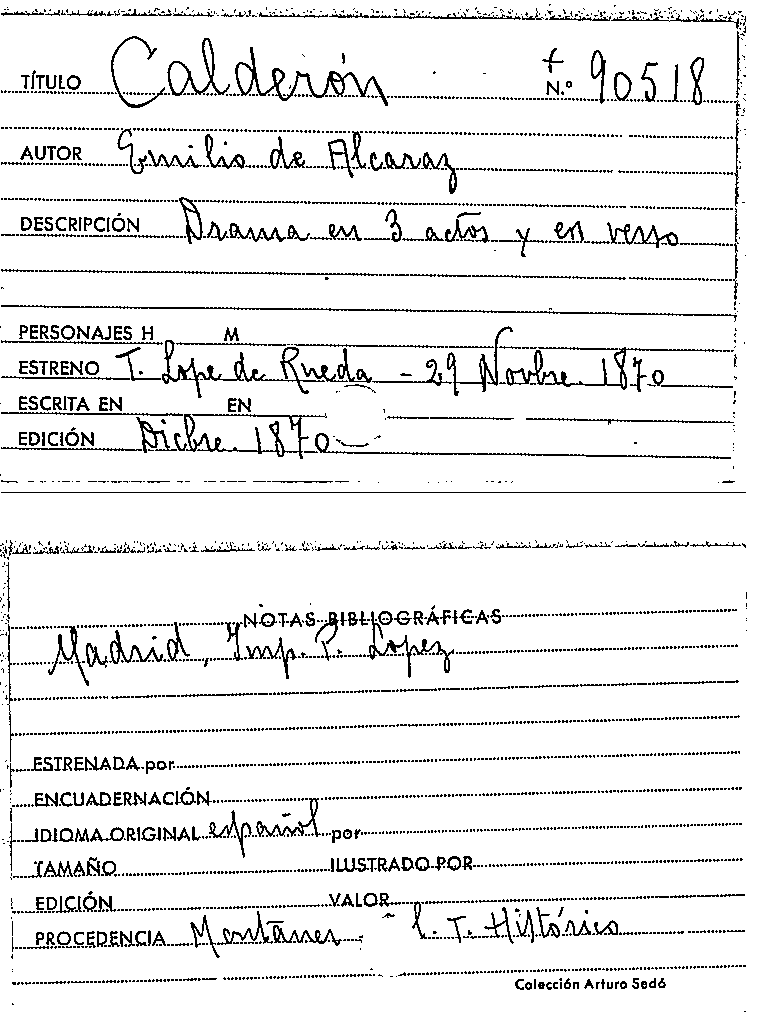 TÍTULO Calderón + N.º 90518
AUTOR Emilio de Alcaraz
DESCRIPCIÓN Drama en 3 actos y en verso
PERSONAJES H M
ESTRENO T. Lope de Rueda - 29 Novbre. 1870
ESCRITA EN EN
EDICIÓN Dicbre. 1870
NOTAS BIBLIOGRÁFICAS
Madrid, Imp. P. Lopez
ESTRENADA por
ENCUADERNACIÓN
IDIOMA ORIGINAL español por
TAMAÑO ILUSTRADO POR
EDICIÓN VALOR
PROCEDENCIA Montaner - C. T. Histórico
Colección Arturo Sedó